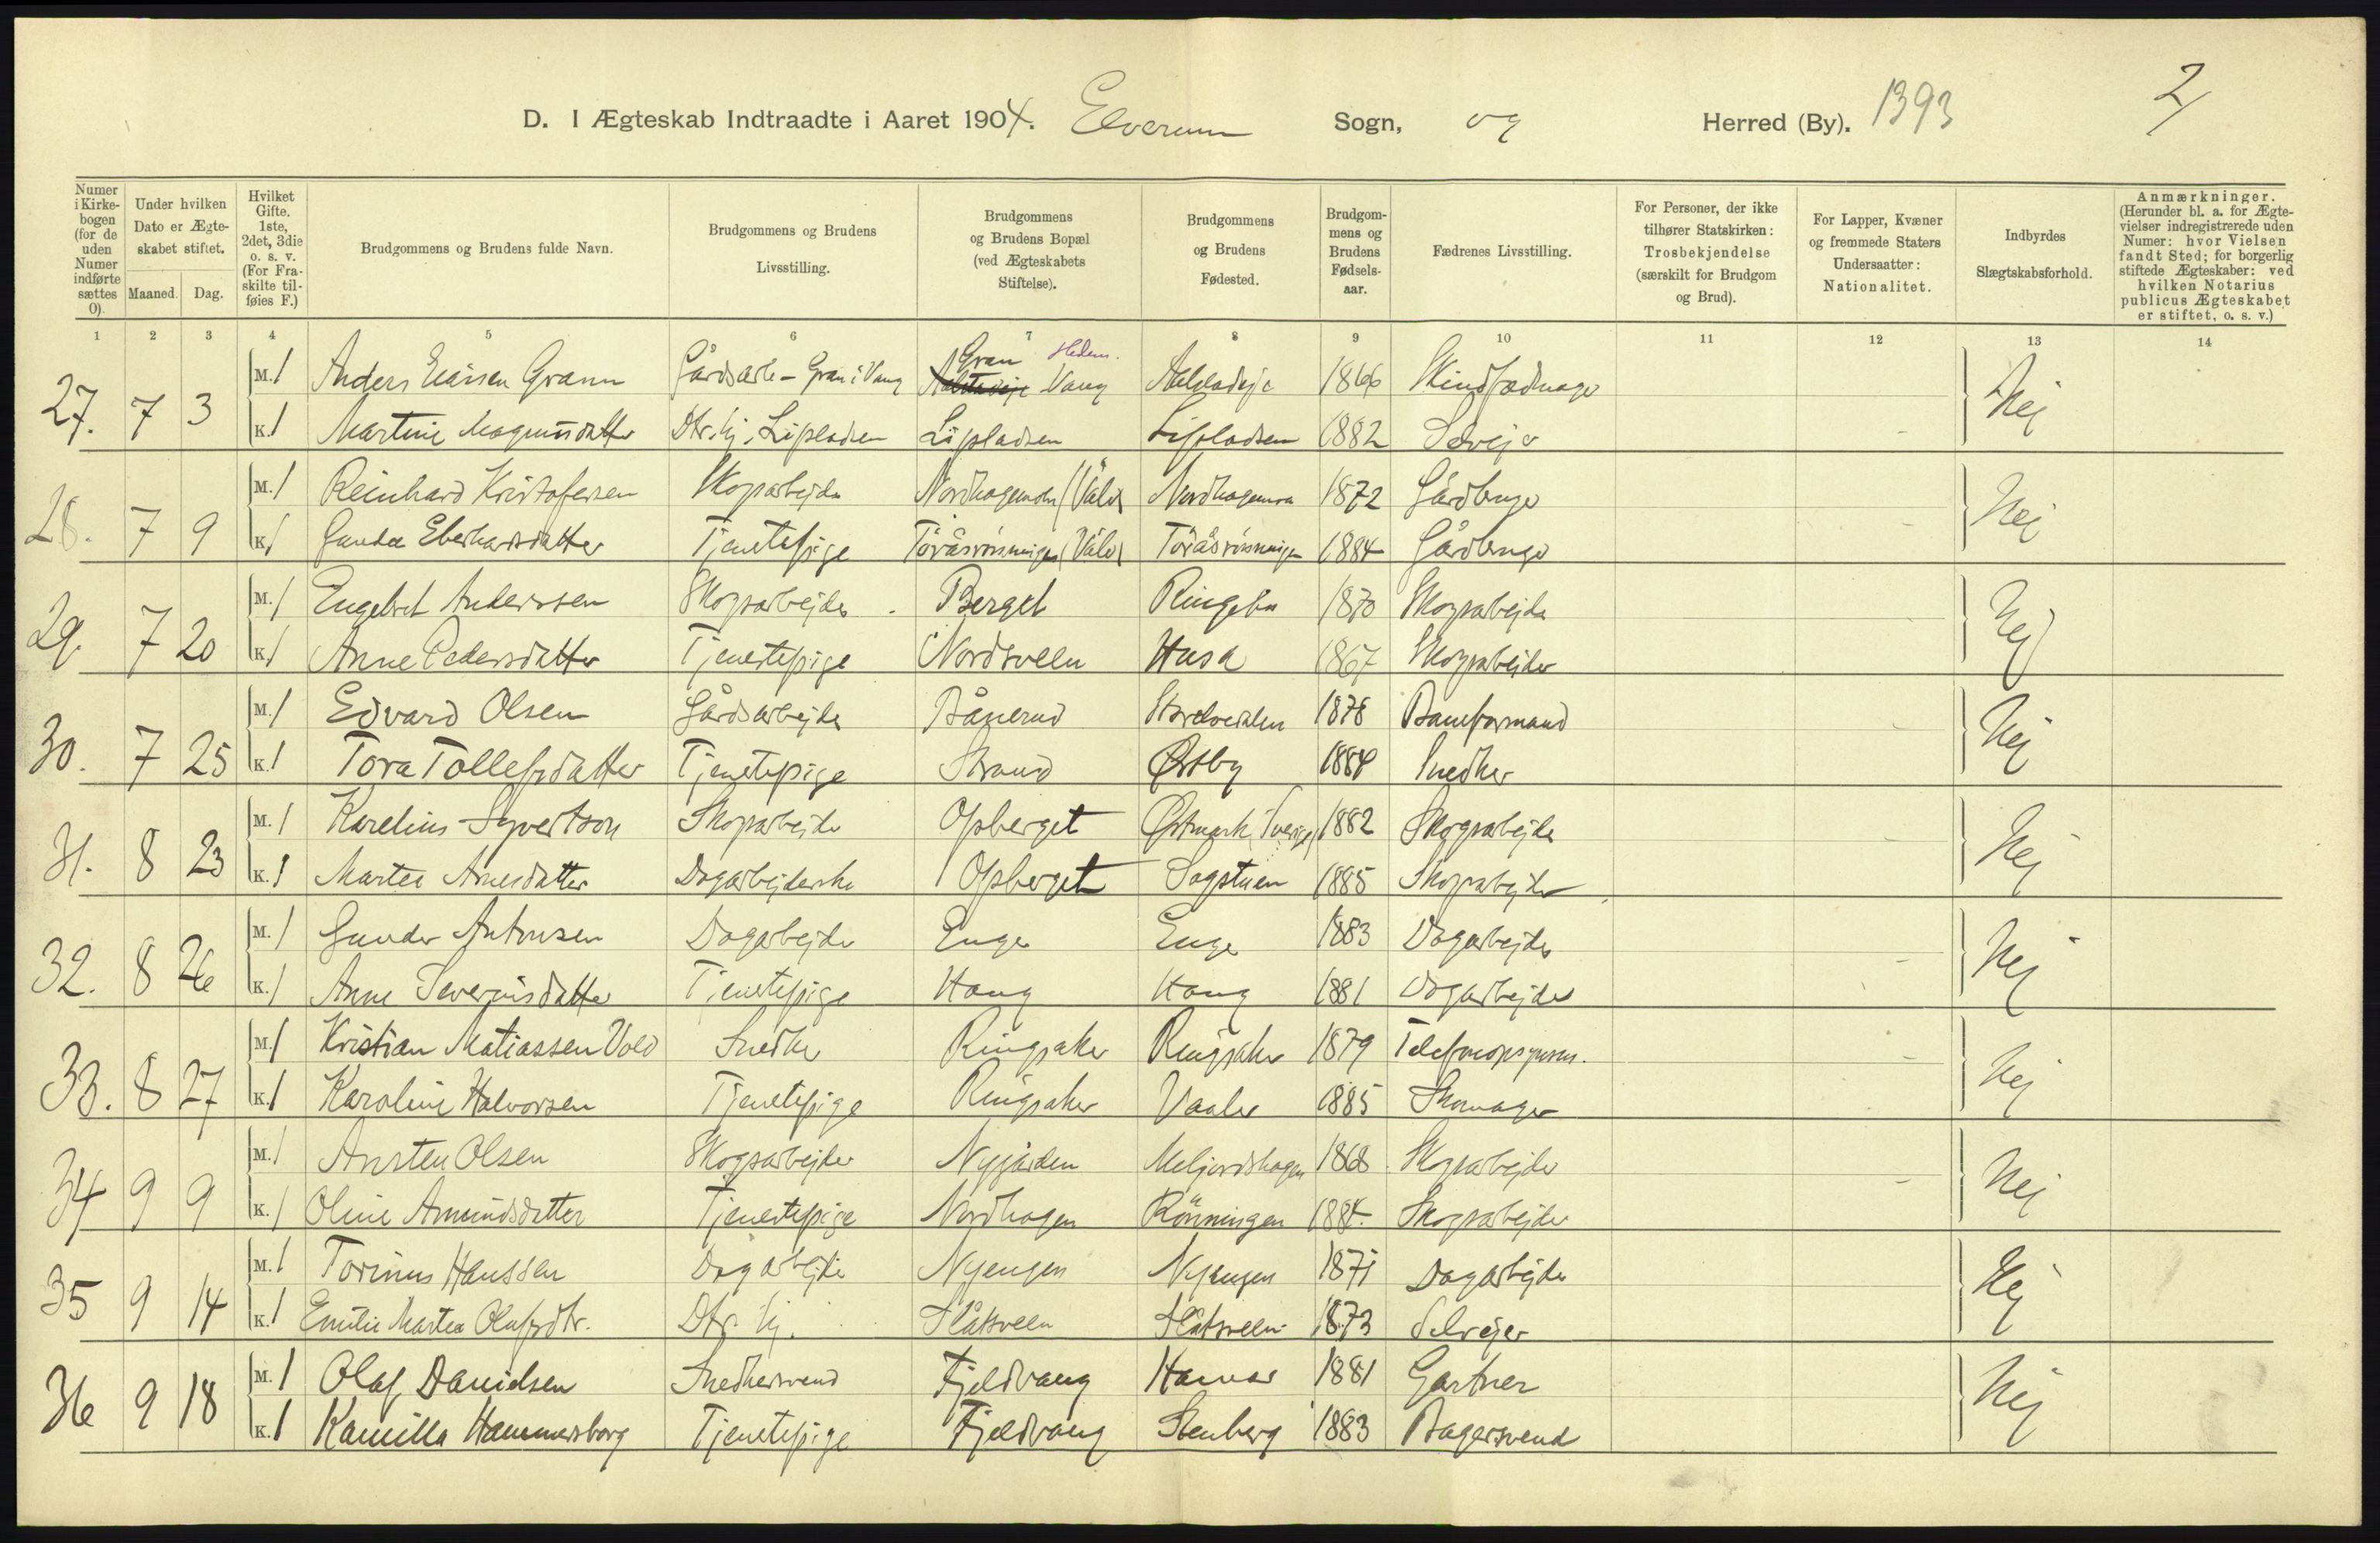 2/
D. I Ægteskab Indtraadte i Aaret 1904. Elverum Sogn, og Herred (By). 1393
Numer i Kirkebogen (for de uden Numer indførte sættes 0).
Under hvilken Dato er Ægteskabet stiftet.
Maaned. Dag.
Hvilket Gifte. 1ste, 2det, 3die o. s. v. (For Fraskilte tilføies F.)
Brudgommens og Brudens fulde Navn.
Brudgommens og Brudens Livsstilling.
Brudgommens og Brudens Bopæl (ved Ægteskabets Stiftelse).
Brudgommens og Brudens Fødested.
Brudgommens og Brudens Fødselsaar.
Fædrenes Livsstilling.
For Personer, der ikke tilhører Statskirken: Trosbekjendelse (særskilt for Brudgom og Brud).
For Lapper, Kvæner og fremmede Staters Undersaatter: Nationalitet.
Indbyrdes Slægtskabsforhold.
Anmærkninger. (Herunder bl. a. for Ægtevielser indregistrerede uden Numer: hvor Vielsen fandt Sted; for borgerlig stiftede Ægteskaber: ved hvilken Notarius publicus Ægteskabet er stiftet, o. s. v.)
1 2 3 4 5 6 7 8 9 10 11 12 13 14
27. 7 3 M. 1 Anders Grann Gårdsarb - Gran i Vang Gran Hedem. Vang 1866 Nej
K. 1 Martine Magnusdatter Dtr. hj. Lipladsen Lipladsen Lipladsen 1882 Selvejer
28. 7 9 M. 1 Reinhard Kristofersen Skogsarbejder 1872 Gårdbruger Nej
K. 1 Gunda Eberhardsdatter Tjenestepige 1884 Gårdbruger
29. 7 20 M. 1 Engebret Anderssen Skogsarbejder Berget Ringebu 1870 Skogsarbejder Nej
K. 1 Anne Pedersdatter Tjenestepige Nordsveen 1867 Skogsarbejder
30. 7 25 M. 1 Edvard Olsen Gårdsarbejder Bånerud 1878 Baneformand Nej
K. 1 Tora Tollefsdatter Tjenestepige Strand Østby 1884 Snedker
31. 8 23 M. 1 Karelius Syvertson Skogsarbejder Opberget Østmark (Sverige) 1882 Skogsarbejder Nej
K. 1 Martea Arnesdatter Dagarbejderske Opberget Sagstuen 1885 Skogsarbejder
32. 8 26 M. 1 Gunder Antonsen Dagarbejder Enge Enge 1883 Dagarbejder Nej
K. 1 Anne Severinsdatter Tjenestepige Haug Haug 1881 Dagarbejder
33. 8 27 M. 1 Kristian Matiassen Vold Snedker Ringsaker Ringsaker 1879 Nej
K. 1 Karoline Halvorsen Tjenestepige Ringsaker Vaaler 1885 Skomager
34 9 9 M. 1 Arnsten Olsen Skogsarbejder Nygården 1868 Skogsarbejder Nej
K. 1 Oline Amundsdatter Tjenestepige Nordhagen Rönningen 1884. Skogsarbejder
35 9 14 M. 1 Torinus Hanssen Dagarbejder Nyengen Nyengen 1871 Dagarbejder Nej
K. 1 Emilie Martea Olufsdtr. Dtr. hj. Slåtsveen Slåtsveen 1873 Selvejer
36 9 18 M. 1 Olaf Danielsen Snedkersvend Fjeldvang Hamar 1881 Gartner Nej
K. 1 Kamilla Hammersborg Tjenestepige Fjeldvang Stenberg 1883 Bagersvend